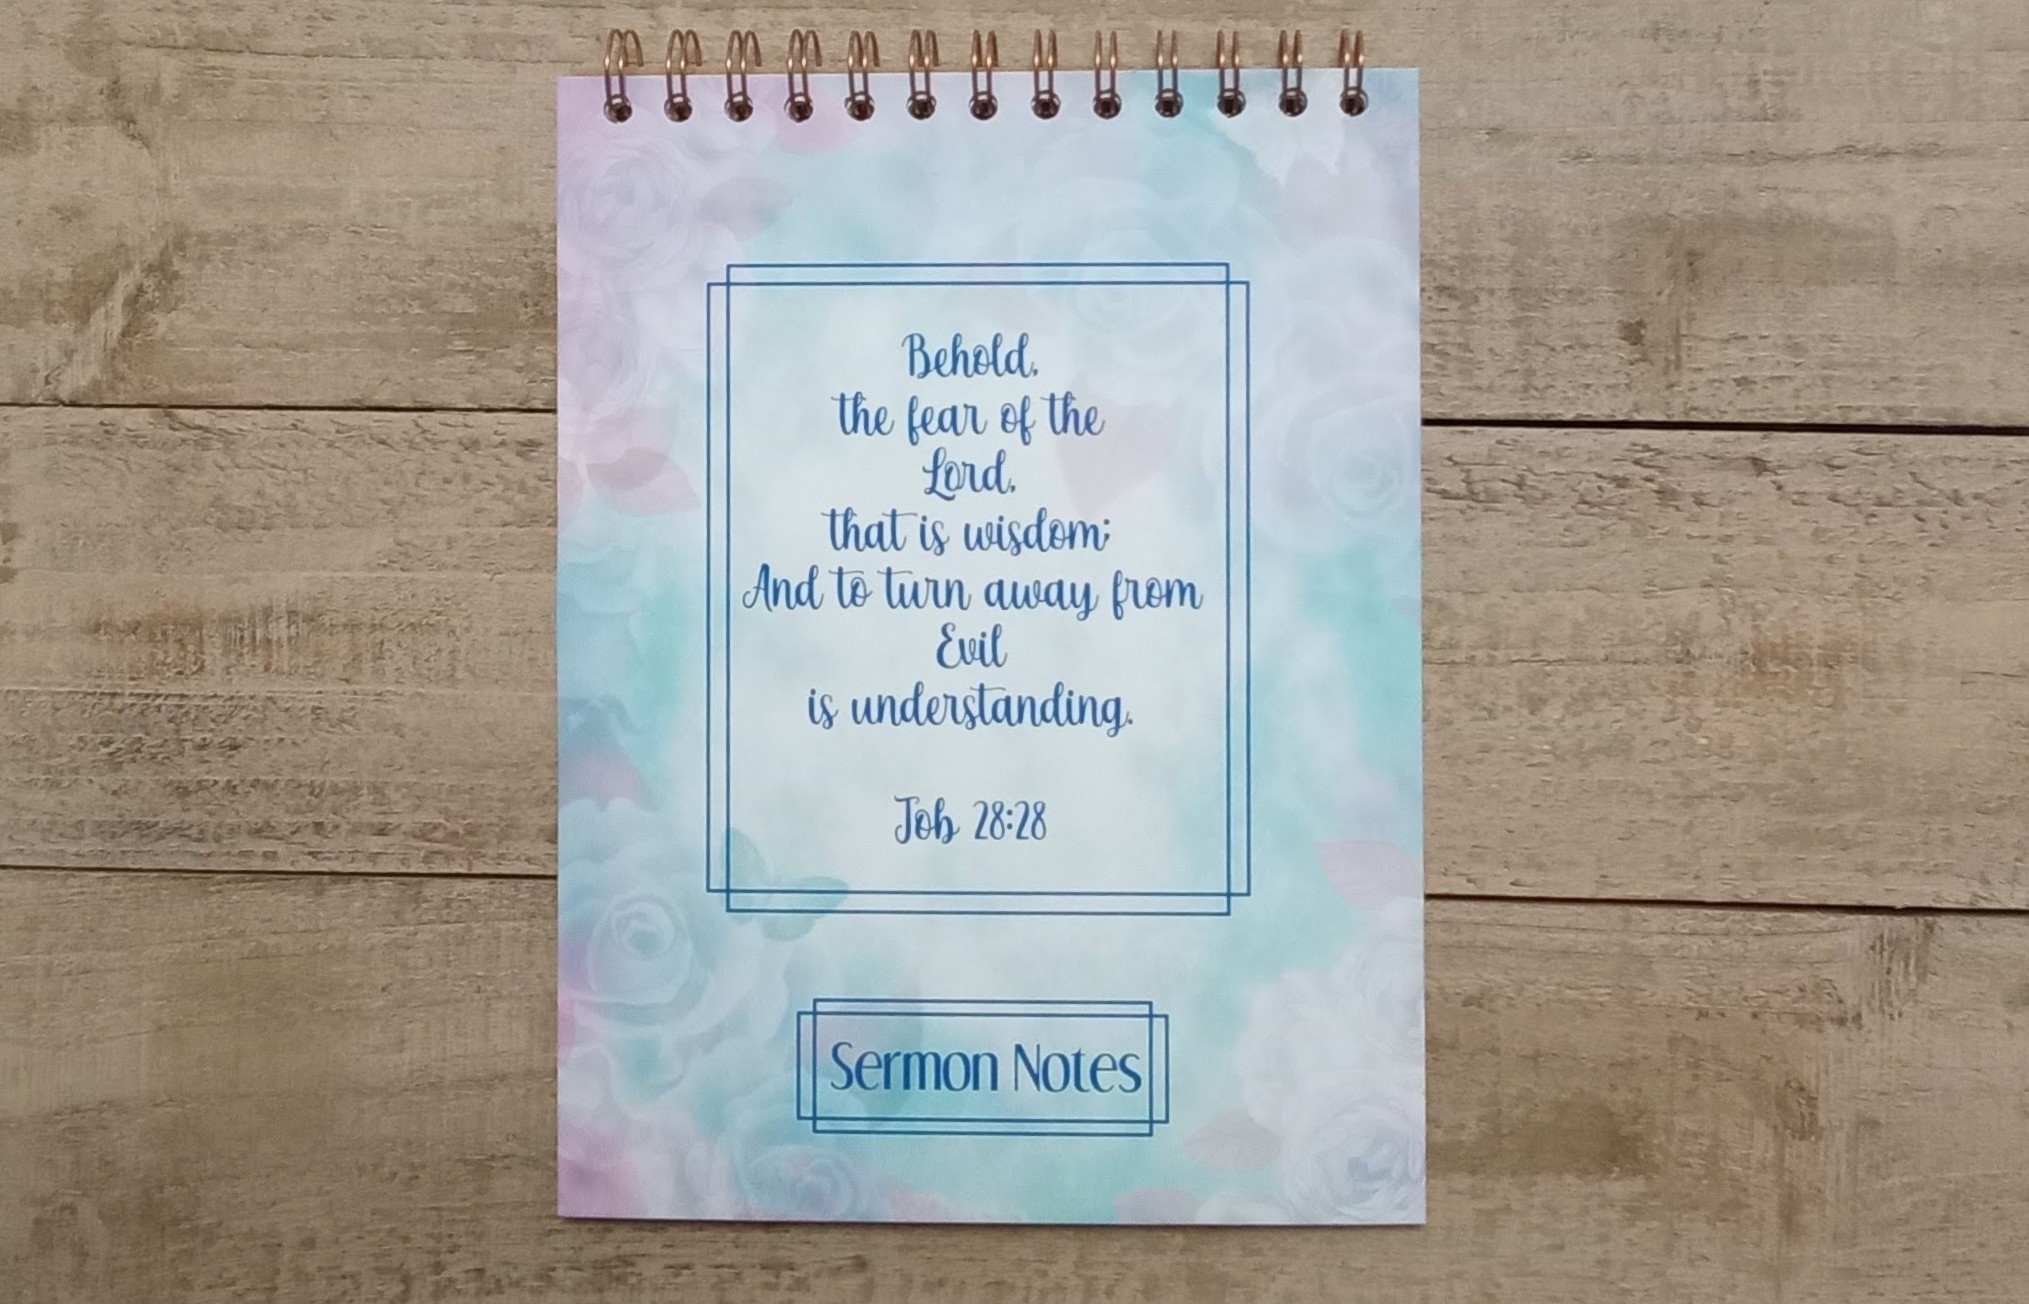 Behold,
the fear of the
Lord,
that is wisdom;
And to turn away from
Evil
is understanding.
Job 28:28
Sermon Notes